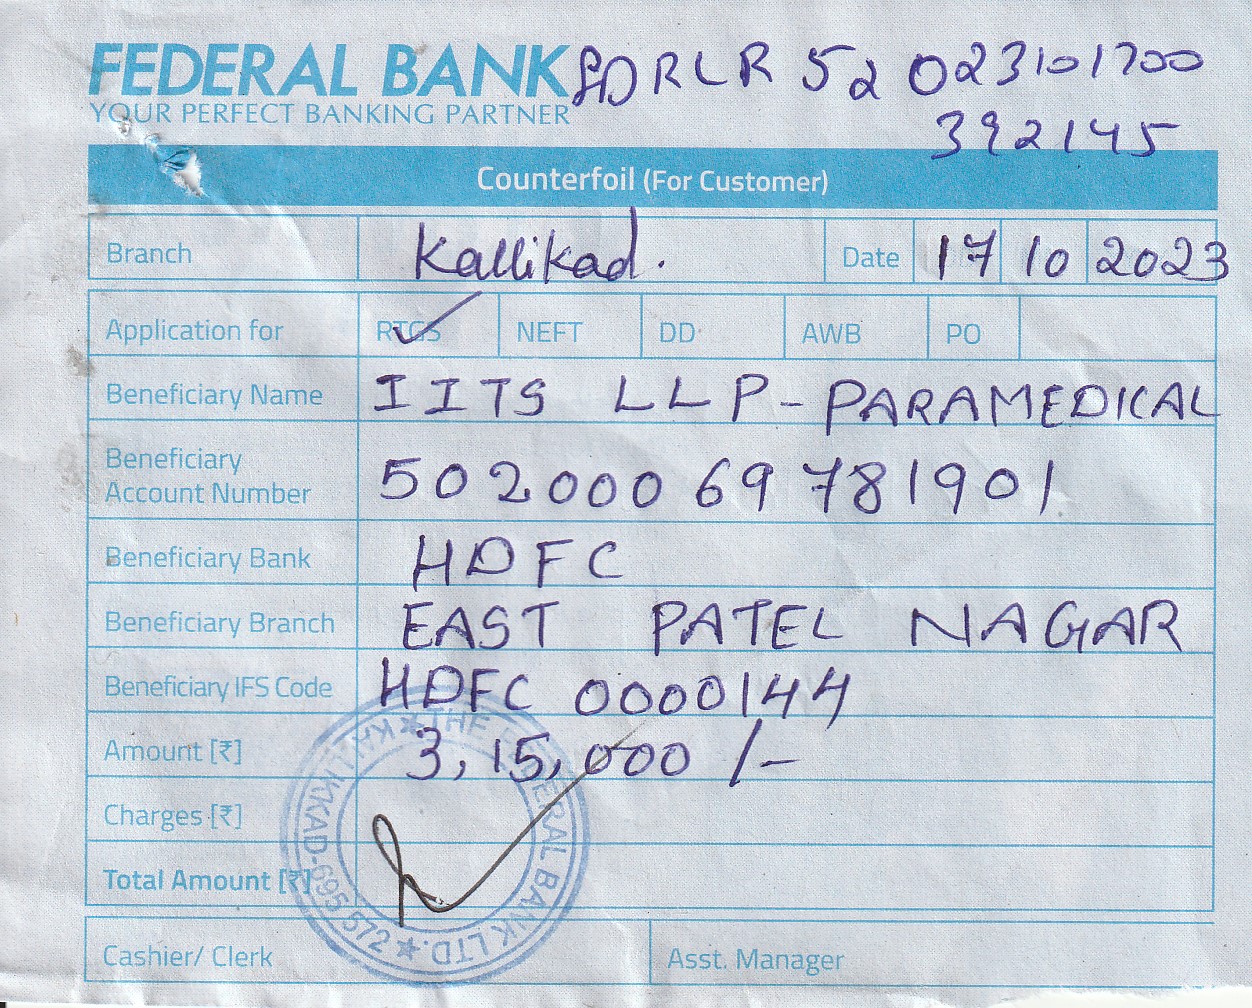 FEDERAL BANK
YOUR PERFECT BANKING PARTNER
FDRLR 52023101700
392145
Counterfoil (For Customer)
Branch Kallikad. Date 17 10 2023
Application for RTGS NEFT DD AWB PO
Beneficiary Name IITS LLP-PARAMEDICAL
Beneficiary
Account Number 50200069781901
Beneficiary Bank HDFC
Beneficiary Branch EAST PATEL NAGAR
Beneficiary IFS Code HDFC 0000144
Amount [₹] 3,15,000/-
Charges [₹]
Total Amount [₹]
THE FEDERAL BANK LTD. ★ KALLIKKAD-695 572 ★
Cashier/ Clerk Asst. Manager